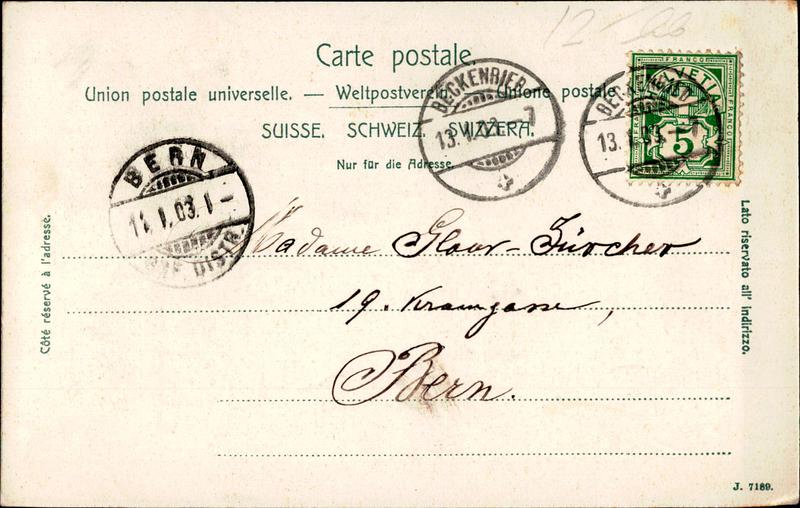 12
Carte postale.
Union postale universelle. — Weltpostverein. — Unione postale
SUISSE. SCHWEIZ. SVIZZERA.
Nur für die Adresse.
BECKENRIED
13. I. 03. -7
FRANCO
HELVETIA
FRANCO
5
BECKENRIED
13. I. 03. -7
BERN
14. I. 03. I-
BRF. DISTR.
Côté réservé à l'adresse.
Lato riservato all' indirizzo.
Madame Gloor-Zürcher
19. Kramgasse,
Bern.
J. 7189.